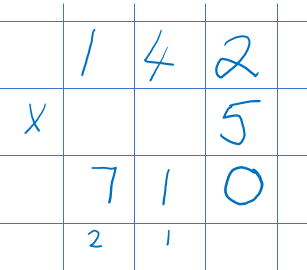 1 4 2
x 5
7 1 0
2 1